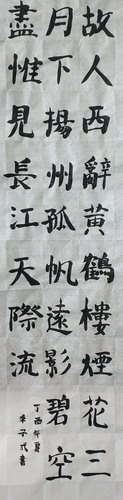 故人西辭黃鶴樓煙花三
月下揚州孤帆遠影碧空
盡惟見長江天際流
丁酉年夏